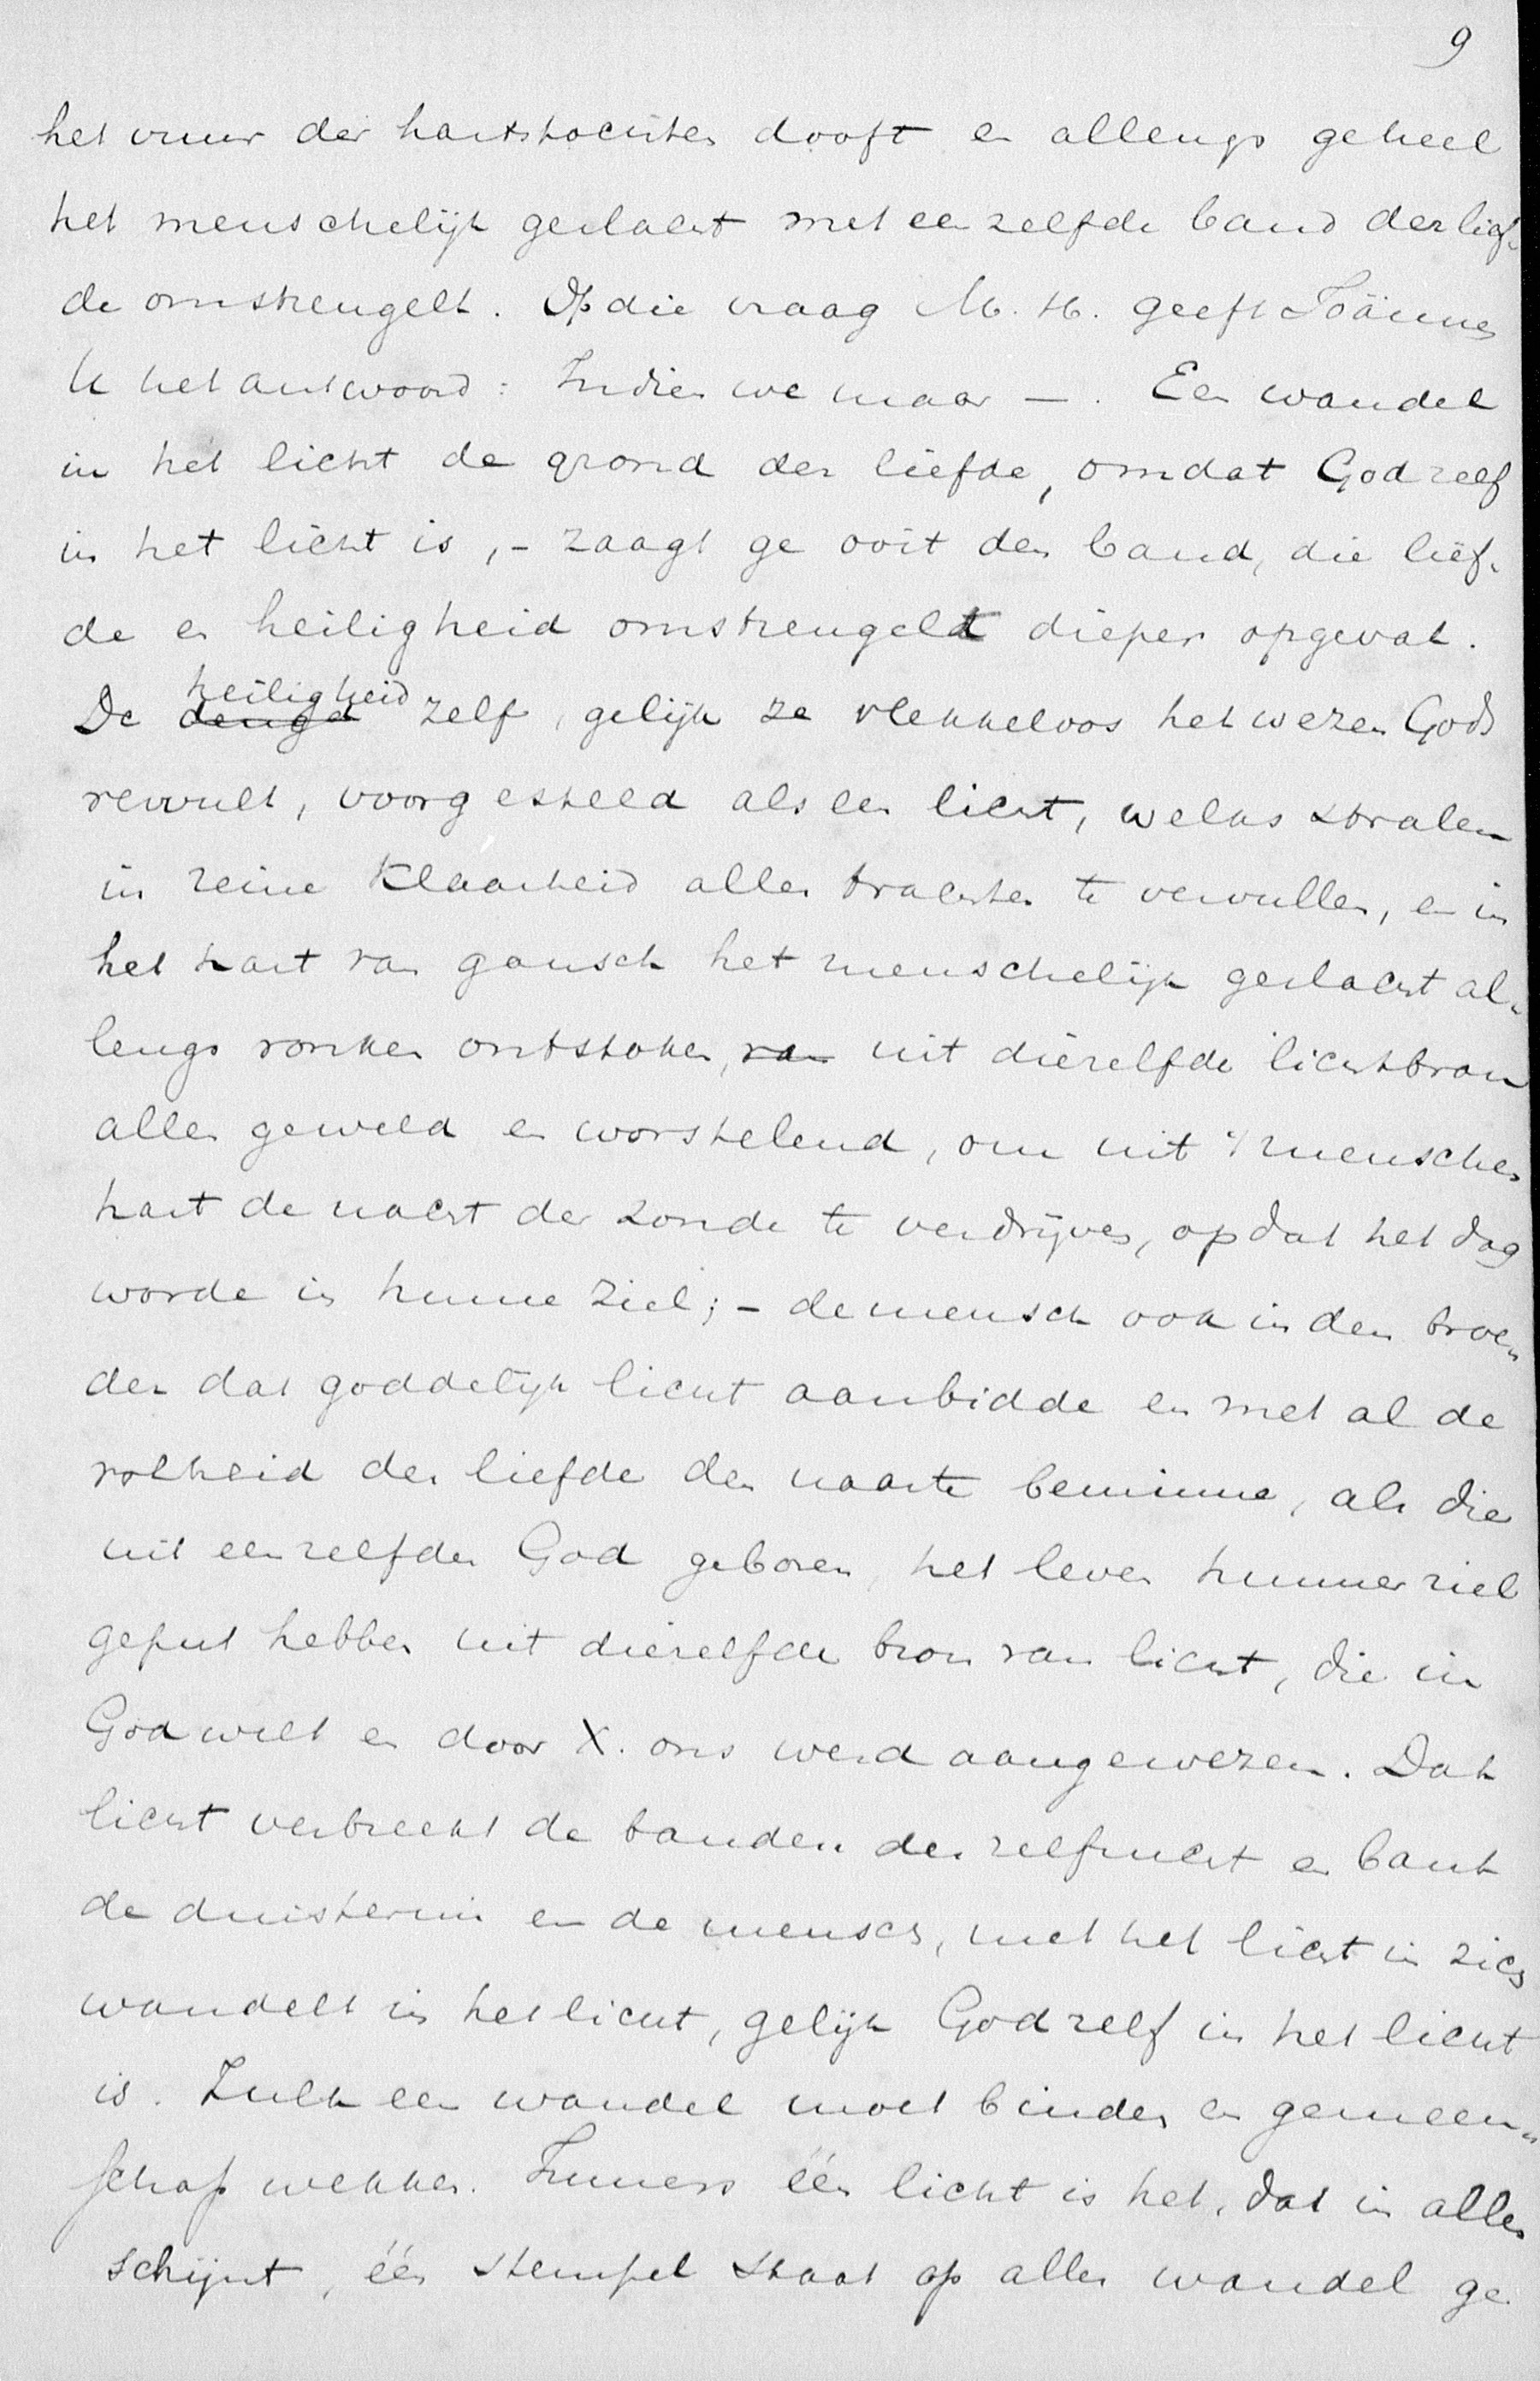 9
het vuur der hartstochten dooft en allengs geheel
het menschelijk geslacht met een zelfde band der lief-
de omstrengelt. Op die vraag M. H. geeft Joännes
U het antwoord: Indien we maar —. Een wandel
in het licht de grond der liefde, omdat God zelf
in het licht is, - zaagt ge ooit den band, die lief-
de en heiligheid omstrengelt dieper opgevat.
De deugd heiligheid zelf, gelijk ze vlekkeloos het wezen Gods
vervult, voorgesteld als een licht, welks stralen
in reine klaarheid allen trachten te vervullen, en in
het hart van gansch het menschelijk geslacht al-
lengs vonken ontstoken, van uit diezelfde lichtbron
allen geweld en worstelend, om uit 's menschen
hart de nacht der zonde te verdrijven, opdat het dag
worde in hunne ziel; - de mensch ook in den broe-
der dat goddelijk licht aanbidde en met al de
volheid der liefde den naaste beminne, als die
uit een zelfden God geboren, het leven hunner ziel
geput hebben uit diezelfde bron van licht, die in
God welt en door X. ons werd aangewezen. Dat
licht verbreekt de banden der zelfzucht en bant
de duisternis en de mensch, met het licht in zich
wandelt in het licht, gelijk God zelf in het licht
is. Zulk een wandel moet binden en gemeen-
schap wekken. Immers één licht is het, dat in allen
schijnt, één stempel staat op aller wandel ge